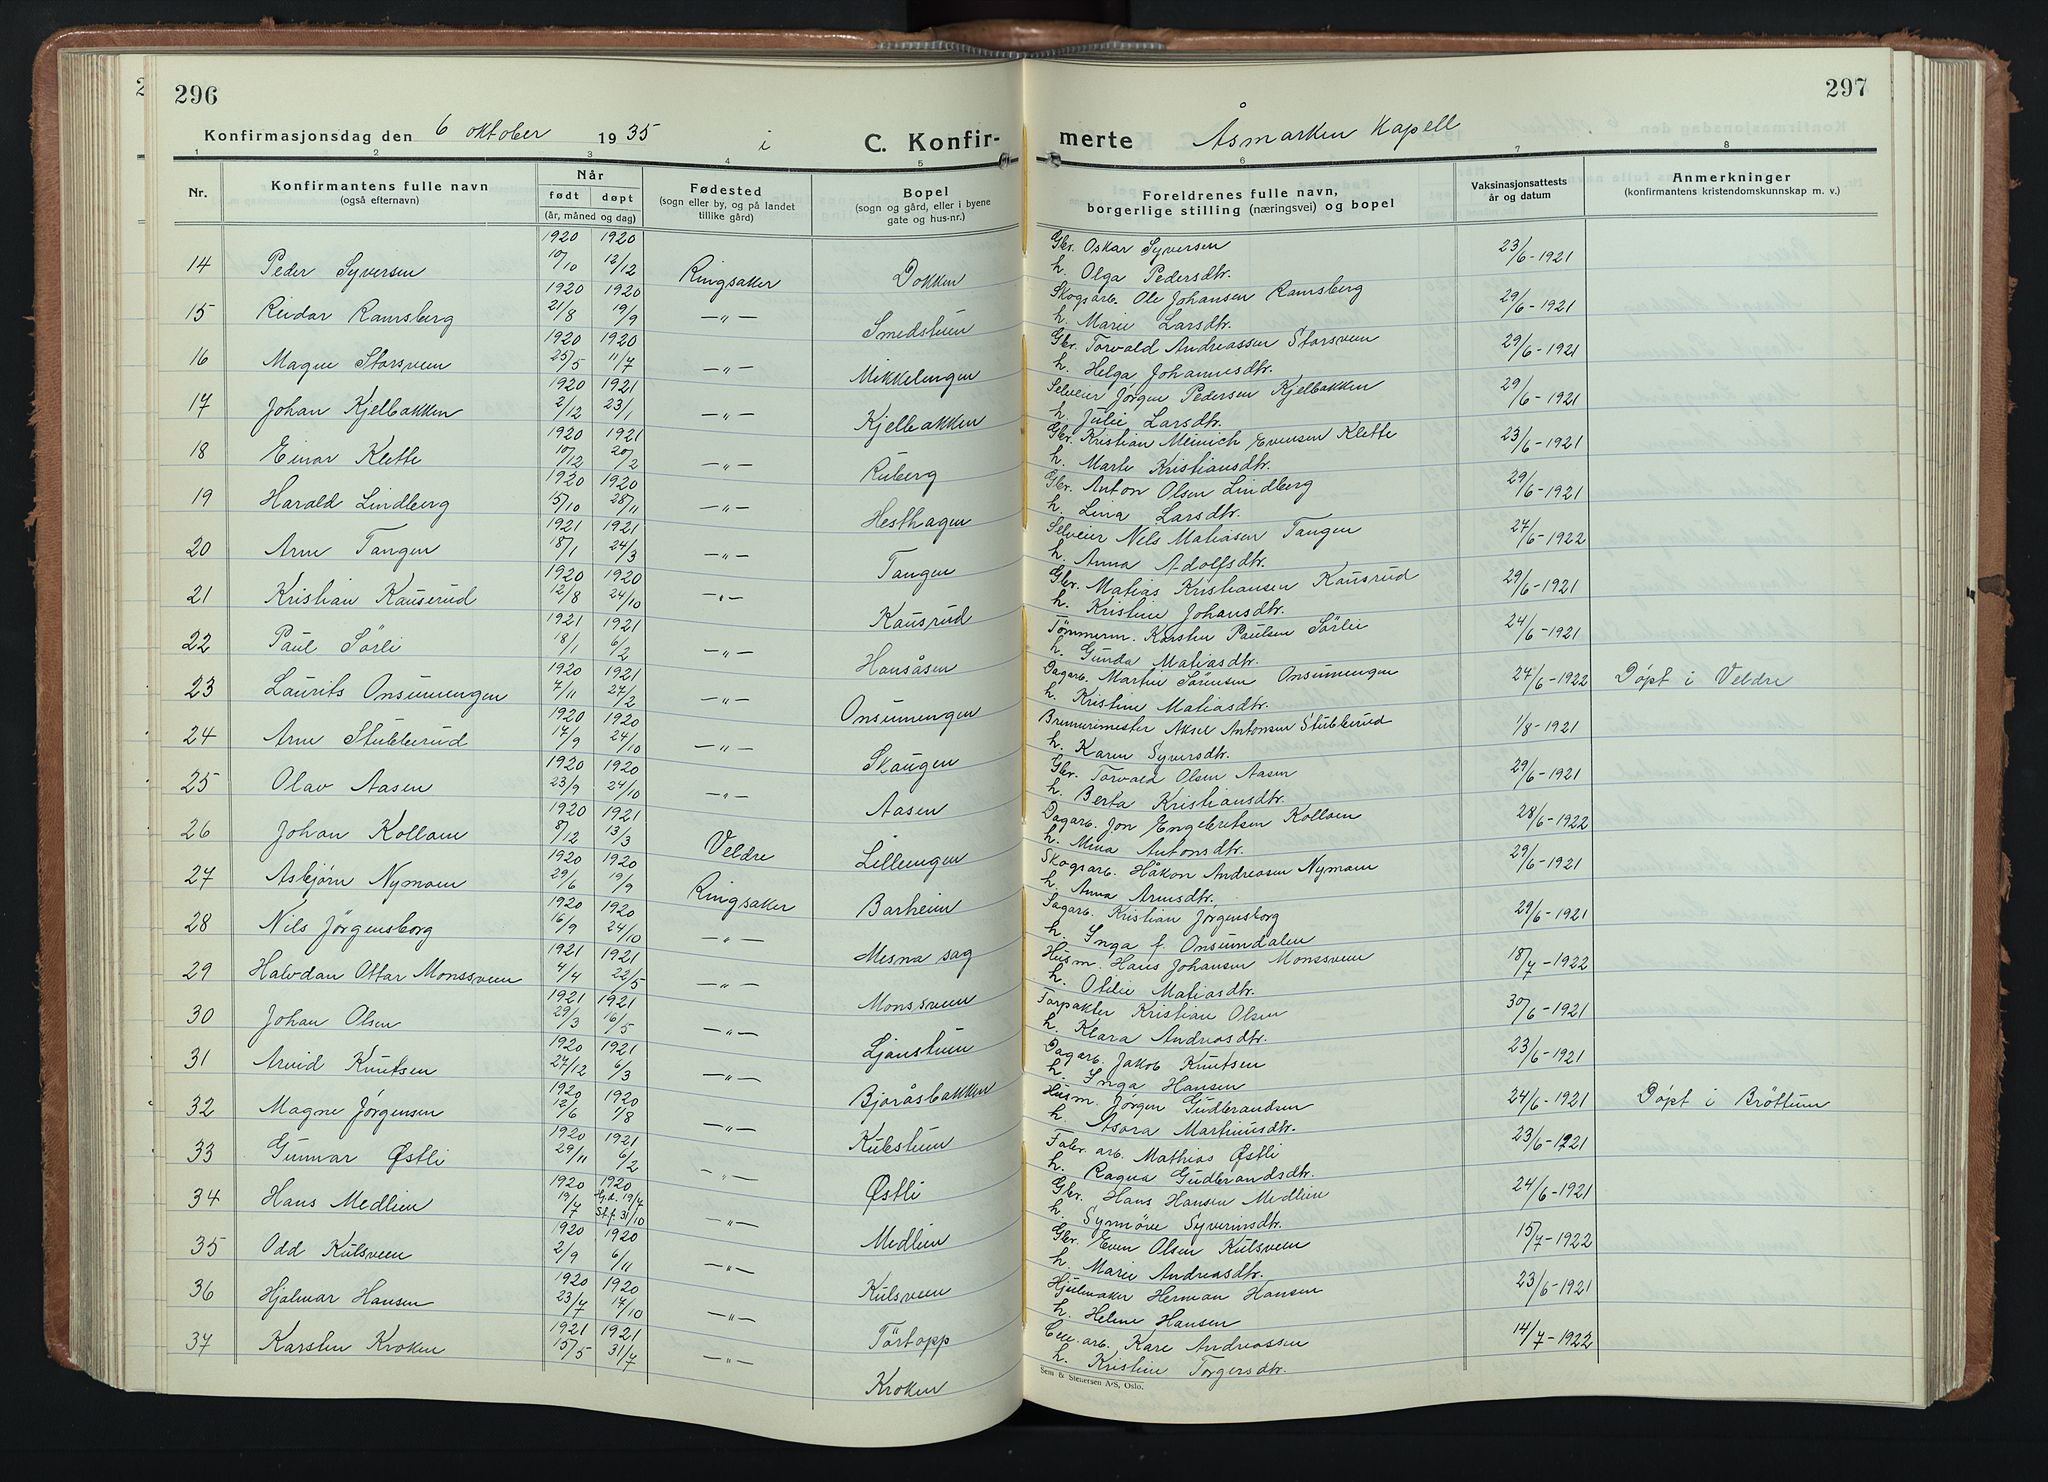 296
Konfirmasjonsdag den 6 oktober 1935 i
C. Konfir-
1 2 3 4 5
Nr. Konfirmantens fulle navn (også efternavn) Når født døpt (år, måned og dag) Fødested (sogn eller by, og på landet tillike gård) Bopel (sogn og gård, eller i byene gate og hus-nr.)
14 Peder Syversen 1920 10/10 1920 12/12 Ringsaker Dokken
15 Reidar Ramsberg 1920 21/8 1920 19/9 —„— Smedstuen
16 Magne Storsveen 1920 25/5 1920 11/7 —„— Mikkelengen
17 Johan Kjelbakken 1920 2/12 1921 23/1 —„— Kjelbakken
18 Einar Klette 1920 10/12 1921 20/2 —„— Ruberg
19 Harald Lindberg 1920 15/10 1920 28/11 —„— Hesthagen
20 Arne Tangen 1921 18/1 1921 24/3 —„— Tangen
21 Kristian Kauserud 1920 12/8 1920 24/10 —„— Kausrud
22 Paul Sörli 1921 18/1 1921 6/2 —„— Hansåsen
23 Laurits Onsumengen 1920 7/11 1921 27/2 —„— Onsumengen
24 Arne Stubberud 1920 17/9 1920 24/10 —„— Skaugen
25 Olav Aasen 1920 23/9 1920 24/10 —„— Aasen
26 Johan Kolloen 1920 8/12 1921 13/3 Veldre Lillengen
27 Asbjørn Nymoen 1920 29/6 1920 19/9 Ringsaker Barheim
28 Nils Jørgensborg 1920 16/9 1920 24/10 —„— Mesna sag
29 Halvdan Ottar Monssveen 1921 4/4 1921 22/5 —„— Monssveen
30 Johan Olsen 1921 29/3 1921 16/5 —„— Ljønstuen
31 Arvid Knutsen 1920 27/12 1921 6/3 —„— Bjoråsbakken
32 Magne Jørgensen 1920 12/6 1920 1/8 —„— Kubstuen
33 Gunnar Østli 1920 29/11 1921 6/2 —„— Østli
34 Hans Medlien 1920 19/7 1920 Hj.d. 19/7 St.f. 31/10 —„— Medlien
35 Odd Kulsveen 1920 2/9 1920 6/11 —„— Kulsveen
36 Hjalmar Hansen 1920 23/7 1920 17/10 —„— Törtopp
37 Karsten Kroken 1921 15/5 1921 31/7 —„— Kroken
297
merte Åsmarken Kapell
6 7 8
Foreldrenes fulle navn, borgerlige stilling (næringsvei) og bopel Vaksinasjonsattests år og datum Anmerkninger (konfirmantens kristendomskunnskap m. v.)
Gbr. Oskar Syversen 23/6-1921
h. Olga Pedersdtr.
Skogsarb. Ole Johansen Ramsberg 29/6-1921
h. Marie Larsdtr.
Gbr. Torvald Andreassen Storsveen 29/6-1921
h. Helga Johannesdtr.
Selveier Jörgen Pedersen Kjelbakken 29/6-1921
h. Julie Larsdtr.
Gbr. Kristian Meinich Evensen Klette 23/6-1921
h. Marte Kristiansdtr.
Gbr. Anton Olsen Lindberg 29/6-1921
h. Lina Larsdtr.
Selveier Nils Matiasen Tangen 27/6-1922
h. Anna Adolfsdtr.
Gbr. Matias Kristiansen Kausrud 29/6-1921
h. Kristine Johansdtr.
Tømmerm. Karsten Paulsen Sørlie 24/6-1921
h. Gunda Matiasdtr.
Dagarb. Martin Sørensen Onsumengen 24/6-1922 Døpt i Veldre
h. Kristine Matiasdtr.
Brennerimester Aksel Antonsen Stubberud 1/8-1921
h. Karen Syversdtr.
Gbr. Torvald Olsen Aasen 29/6-1921
h. Berta Kristiansdtr.
Dagarb. Jon Engebretsen Kolloen 28/6-1922
h. Mina Antonsdtr.
Skogsarb. Håkon Andreasen Nymoen 29/6-1921
h. Anna Arnesdtr.
Sagarb. Kristian Jørgensborg 29/6-1921
h. Inga f. Onsumdalen
Husm. Hans Johansen Monssveen 18/7-1922
h. Otilie Matiasdtr.
Forpakter Kristian Olsen 30/6-1921
h. Klara Andreasdtr.
Dagarb. Jakob Knutsen 23/6-1921
h. Inga Hansen
Husm. Jørgen Gudbrandsen 24/6-1921 Døpt i Bröttum
h. Asora Martinusdtr.
Fabr. arb. Mathias Østli 23/6-1921
h. Ragna Gudbrandsdtr.
Gbr. Hans Hansen Medlien 24/6-1921
h. Synnöve Syverinsdtr.
Gbr. Even Olsen Kulsveen 15/7-1922
h. Marie Andreasdtr.
Hjulmaker Herman Hansen 23/6-1921
h. Helene Hansen
Cell. arb. Kare Andreassen 14/7-1922
h. Kristine Torgersdtr.
Sem & Stenersen A/S, Oslo.